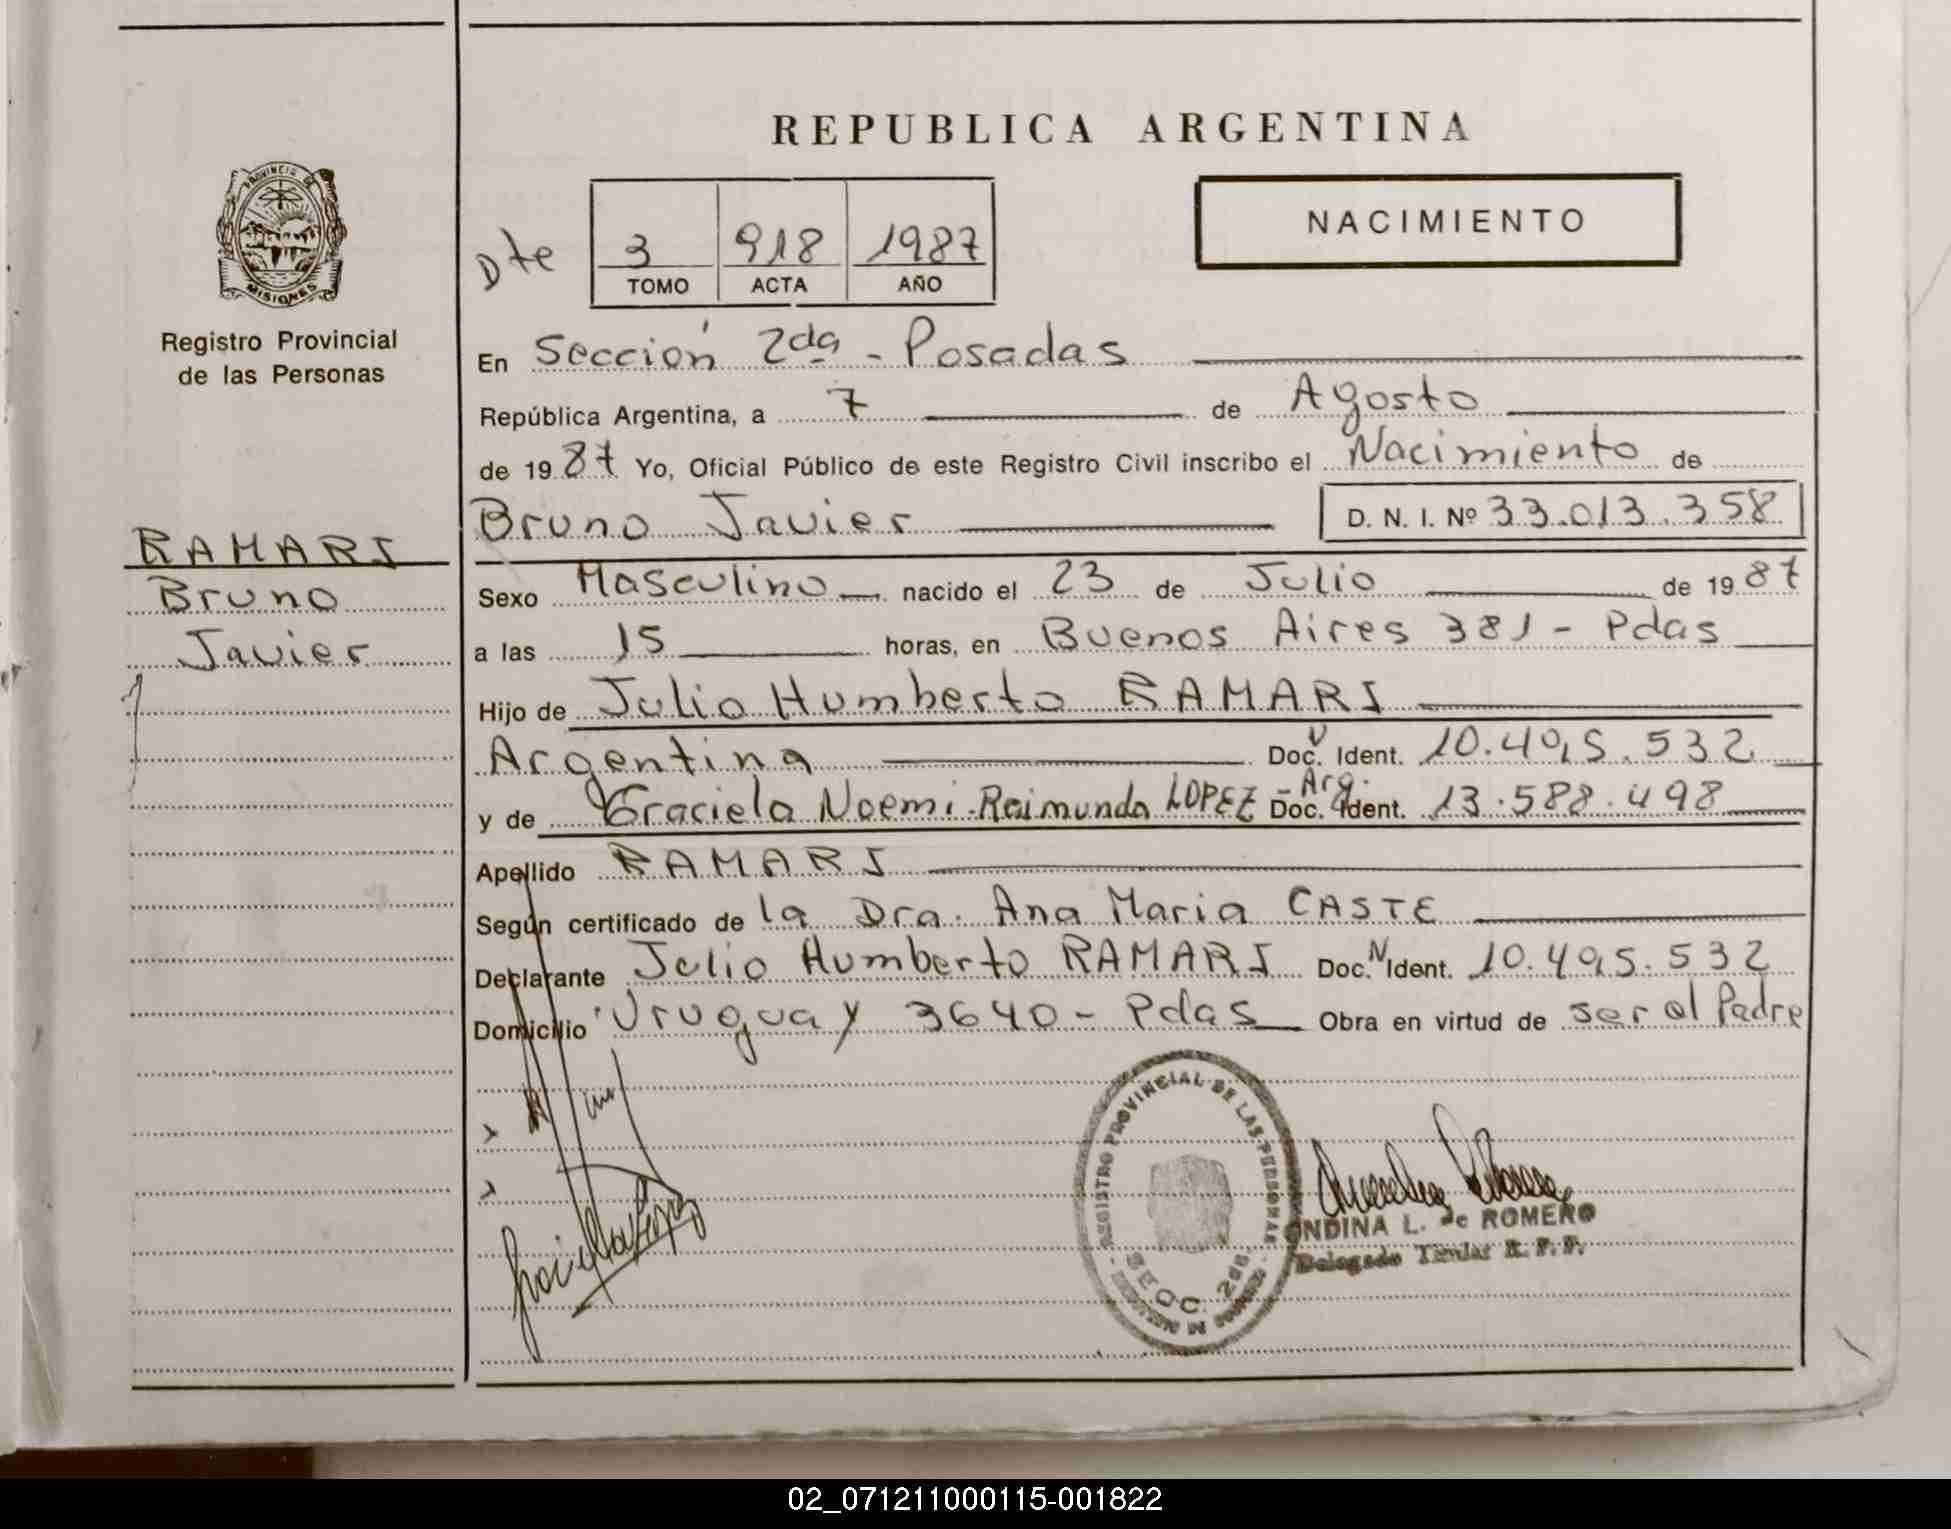 REPUBLICA ARGENTINA
PROVINCIA DE
MISIONES
Registro Provincial
de las Personas
NACIMIENTO
Dte 3 918 1987
TOMO ACTA AÑO
En Sección 2da - Posadas
República Argentina, a 7 de Agosto
de 1987 Yo, Oficial Público de este Registro Civil inscribo el Nacimiento de
Bruno Javier D. N. I. Nº 33.013.358
RAMARI
Bruno
Javier
Sexo Masculino nacido el 23 de Julio de 1987
a las 15 horas, en Buenos Aires 381 - Pdas
Hijo de Julio Humberto RAMARI
Argentina Doc. Ident. 10.405.532
y de Graciela Noemi Raimunda LOPEZ - Arg. Doc. Ident. 13.588.498
Apellido RAMARI
Según certificado de la Dra. Ana Maria CASTE
Declarante Julio Humberto RAMARI Doc. N Ident. 10.405.532
Domicilio Uruguay 3640 - Pdas Obra en virtud de ser el Padre
REGISTRO PROVINCIAL DE LAS PERSONAS
SECC. 2da
ONDINA L. de ROMERO
Delegado Titular R. P. P.
02_071211000115-001822